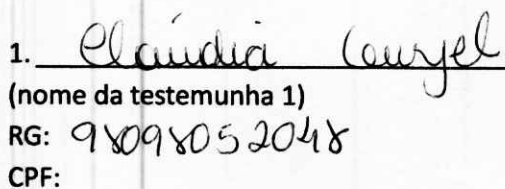 1. Claudia
(nome da testemunha 1)
RG: 98098052048
CPF: